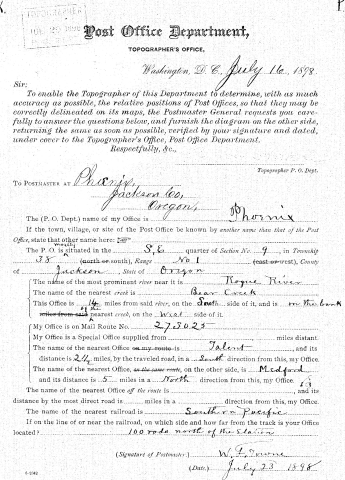 Post Office Department,
TOPOGRAPHER'S OFFICE,
Washington, D. C., July 16, 1898.
Sir:
To enable the Topographer of this Department to determine, with as much
accuracy as possible, the relative positions of Post Offices, so that they may be
correctly delineated on its maps, the Postmaster General requests you care-
fully to answer the questions below, and furnish the diagram on the other side,
returning the same as soon as possible, verified by your signature and dated,
under cover to the Topographer's Office, Post Office Department.
Respectfully, &c.,
Topographer P. O. Dept.
To POSTMASTER AT Phœnix,
Jackson Co,
Oregon,
The (P. O. Dept.) name of my Office is Phoenix
If the town, village, or site of the Post Office be known by another name than that of the Post
Office, state that other name here:
The P. O. is situated in the S.E. quarter of Section No. 9, in Township
38 (north or south), Range No. 1 (east or west), County
of Jackson, State of Oregon
The name of the most prominent river near it is Rogue River
The name of the nearest creek is Bear Creek
This Office is 14 miles from said river, on the South side of it, and is on the bank
miles from said nearest creek, on the West side of it.
My Office is on Mail Route No. 273025
My Office is a Special Office supplied from miles distant.
The name of the nearest Office on my route is Talent, and its
distance is 2½ miles, by the traveled road, in a South direction from this, my Office.
The name of the nearest Office, on the same route, on the other side, is Medford
and its distance is 5 miles in a North direction from this, my Office.
The name of the nearest Office off the route is, and its
distance by the most direct road is miles in a direction from this, my Office.
The name of the nearest railroad is Southern Pacific
If on the line of or near the railroad, on which side and how far from the track is your Office
located? 100 rods north of the Station
(Signature of Postmaster) W. L. Towne
(Date.) July 23" 1898